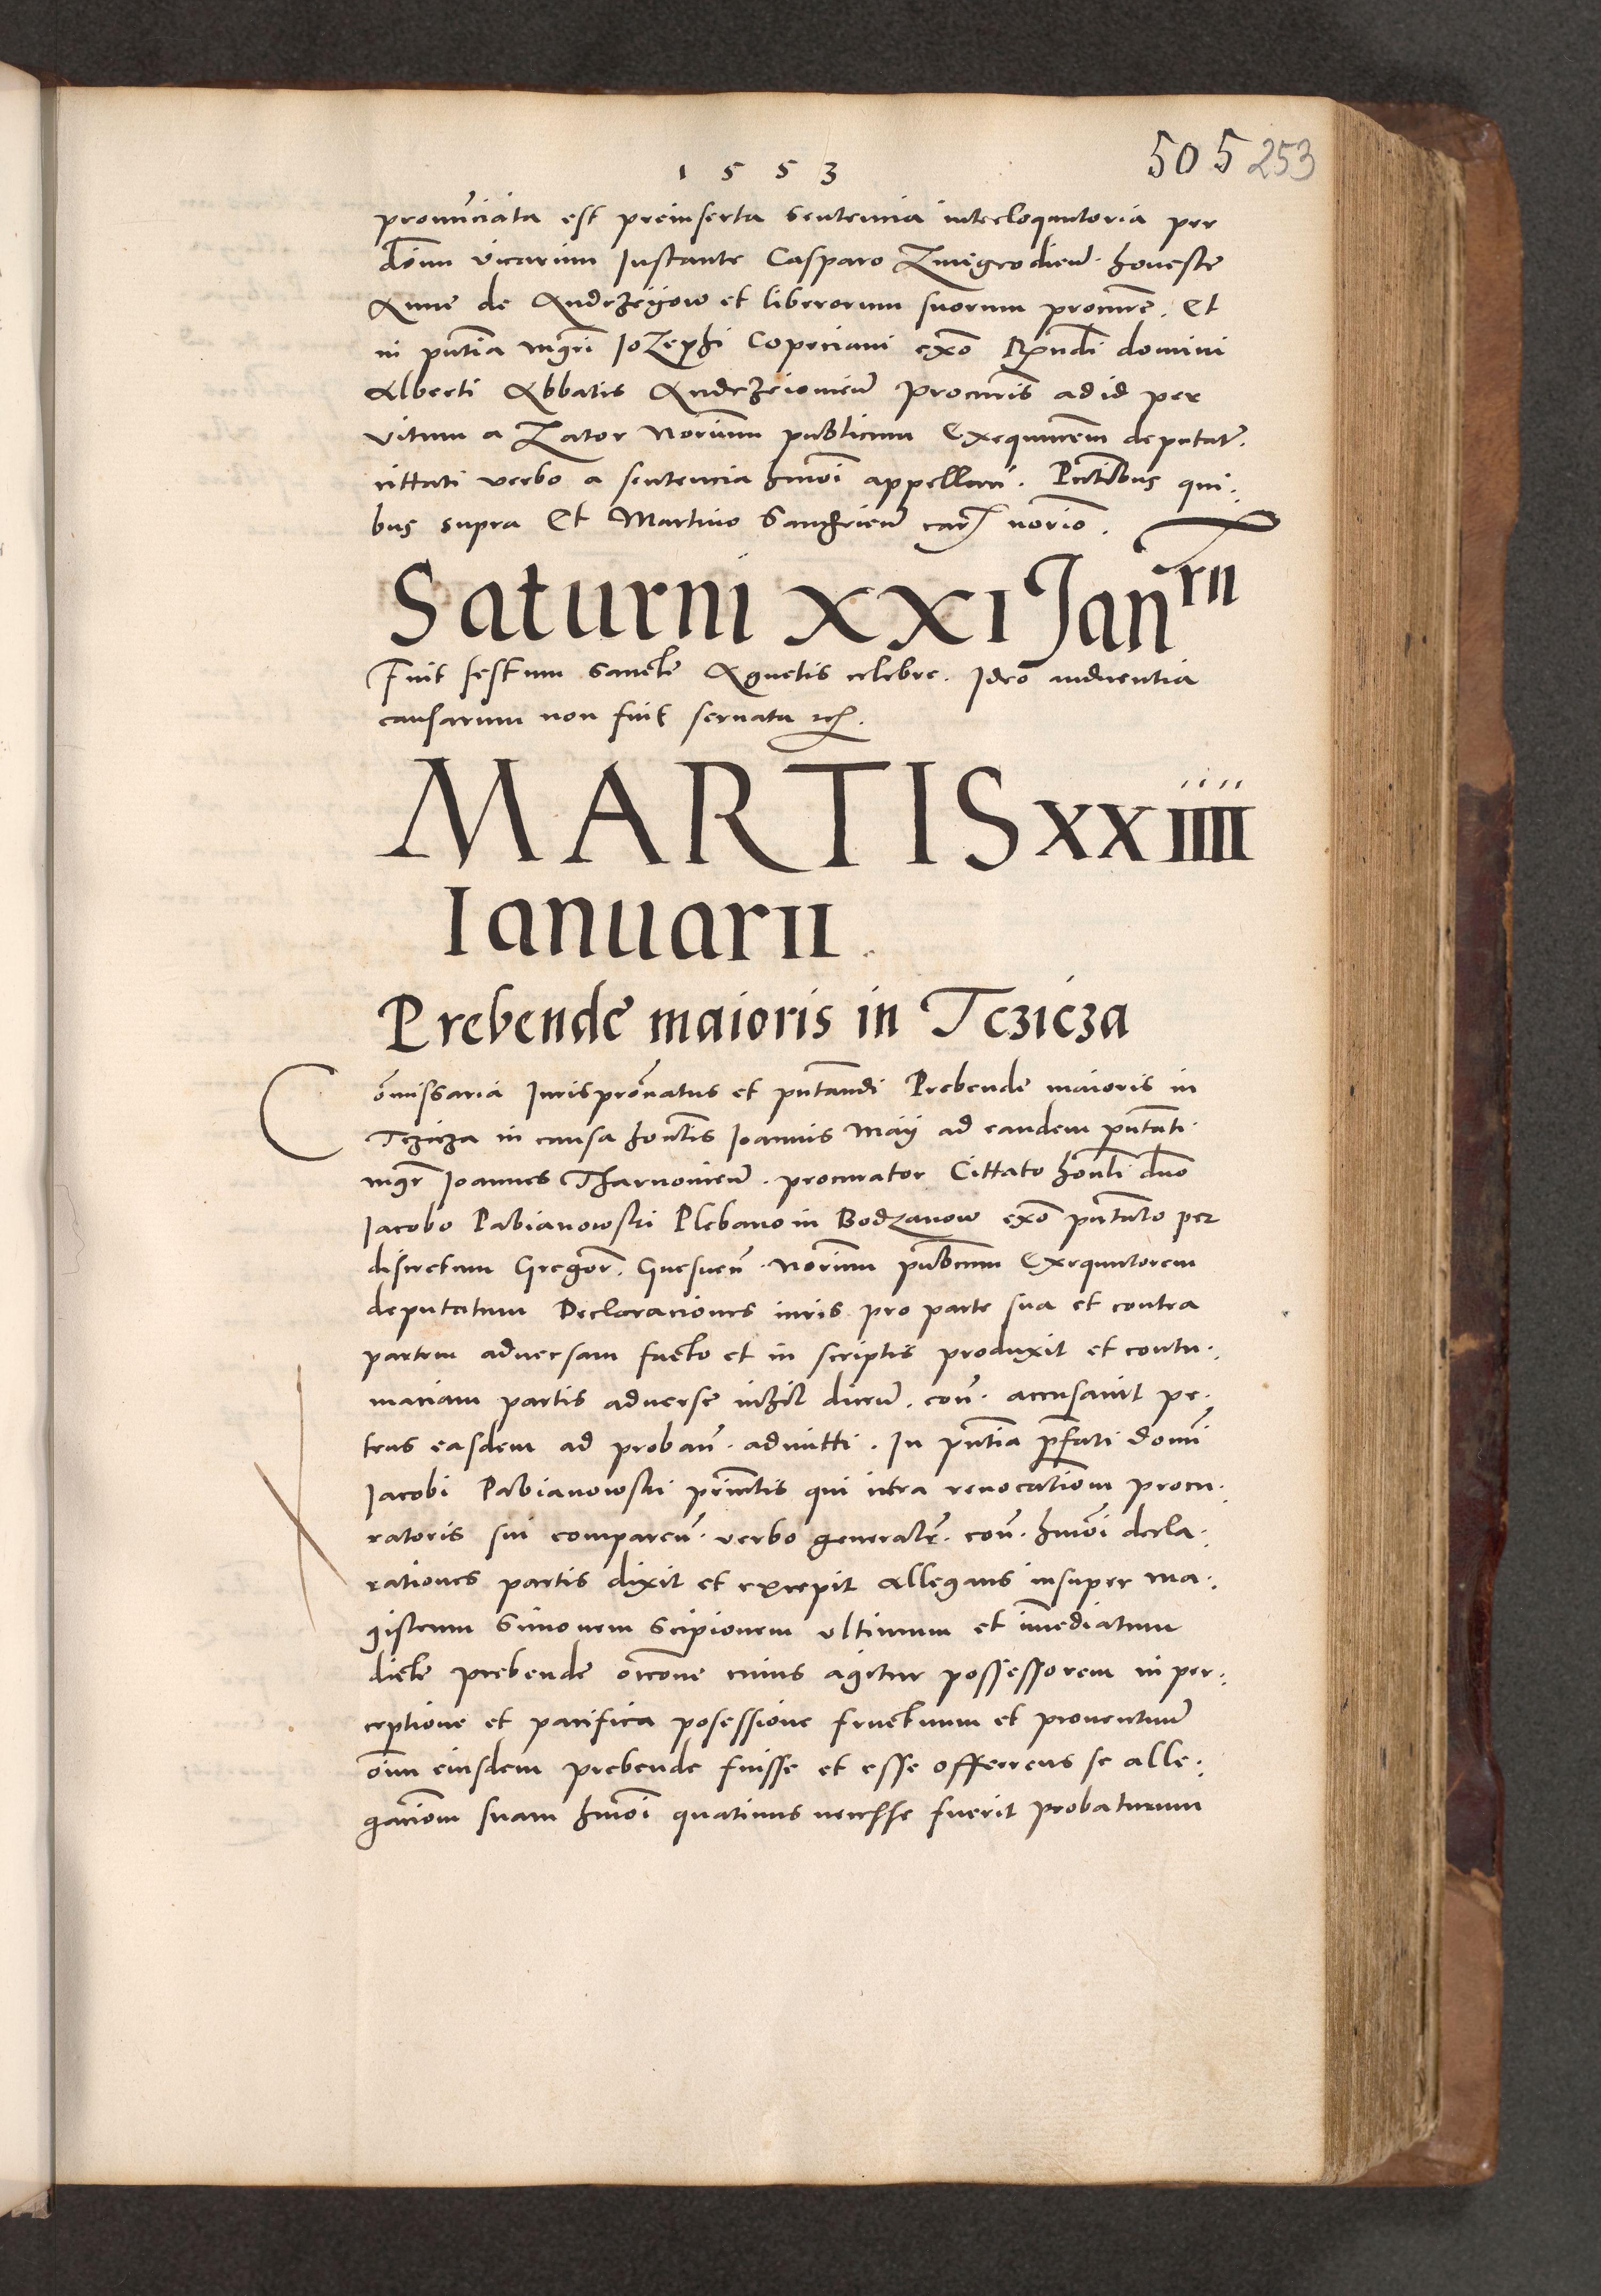 1553
505 253
pronu̅ciata est preinserta sentencia interloqutoria per
dom̅n vicarium Instante Casparo Zmigrodien̅. honeste
Anne de Andrzeÿow et liberorum suorum procu̅re. Et
in pn̅tia mgr̅i Jozephi Copeciani ex̅o Rn̅di domini
Alberti Abbatis Andrzeiouien̅ procu̅ris ad id per
vitum a Zator nori̅um publicum Exequu̅rem deputat̅.
cittati verbo a sentencia hmo̅i appellan̅. Pn̅tibus qui:
bus supra Et Martino
Saturni XXI Jan̅rii
Fuit festum sancte Agnetis celebre. Ideo audientia
causarum non fuit seruata etc.
MARTIS xxiiii
Ianuarii
Prebende maioris in Tczicza
Com̅issaria Jurispron̅atus et pn̅tandi Prebende maioris in
Tczicza in causa hon̅tis Joannis Maÿ ad eandem pn̅tati
mgr̅ Joannes Tharnouien̅. procurator Cittato hon̅li dn̅o
Jacobo Pabianowski Plebano in Bodzanow ex̅o pn̅tato per
discretum Gregor̅. Gnesnen̅. nori̅um pub̅cum Exequutorem
deputatum Declaraciones iuris pro parte sua et contra
partem aduersam facto et in scriptis produxit et contu:
maciam partis aduerse nihil dicen̅. con̅. accusauit pe:
tens easdem ad proban̅. admitti. In pn̅tia pr̅fati domi̅
Jacobi Pabianowski prin̅tis qui citra reuocatio̅m procu:
ratoris sui comparen̅. verbo generalr̅. con̅. hmo̅i decla:
rationes partis dixit et excepit Allegans insuper ma:
gistrum Simonem Scipionem vltimum et im̅ediatum
dicte prebende occ̅one cuius agitur possessorem in per:
ceptione et pacifica posessione fructuum et prouentuu̅
oi̅um eiusdem prebende fuisse et esse offerrens se alle:
gacio̅m suam hmo̅i quatinus necesse fuerit probaturum